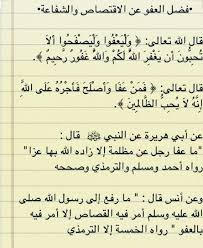 •فضل العفو عن الاقتصاص والشفاعة•
قال الله تعالى: ﴿ وَلْيَعْفُوا وَلْيَصْفَحُوا أَلَا
تُحِبُّونَ أَن يَغْفِرَ اللَّهُ لَكُمْ وَاللَّهُ غَفُورٌ رَحِيمٌ ﴾.
قال تعالى: ﴿ فَمَنْ عَفَا وَأَصْلَحَ فَأَجْرُهُ عَلَى اللَّهِ
إِنَّهُ لَا يُحِبُّ الظَّالِمِينَ ﴾.
عن أبي هريرة عن النبي ﷺ قال :
"ما عفا رجل عن مظلمة إلا زاده الله بها عزا"
رواه أحمد ومسلم والترمذي وصححه
وعن أنس قال : " ما رفع إلى رسول الله صلى
الله عليه وسلم أمر فيه القصاص إلا أمر فيه
بالعفو " رواه الخمسة إلا الترمذي